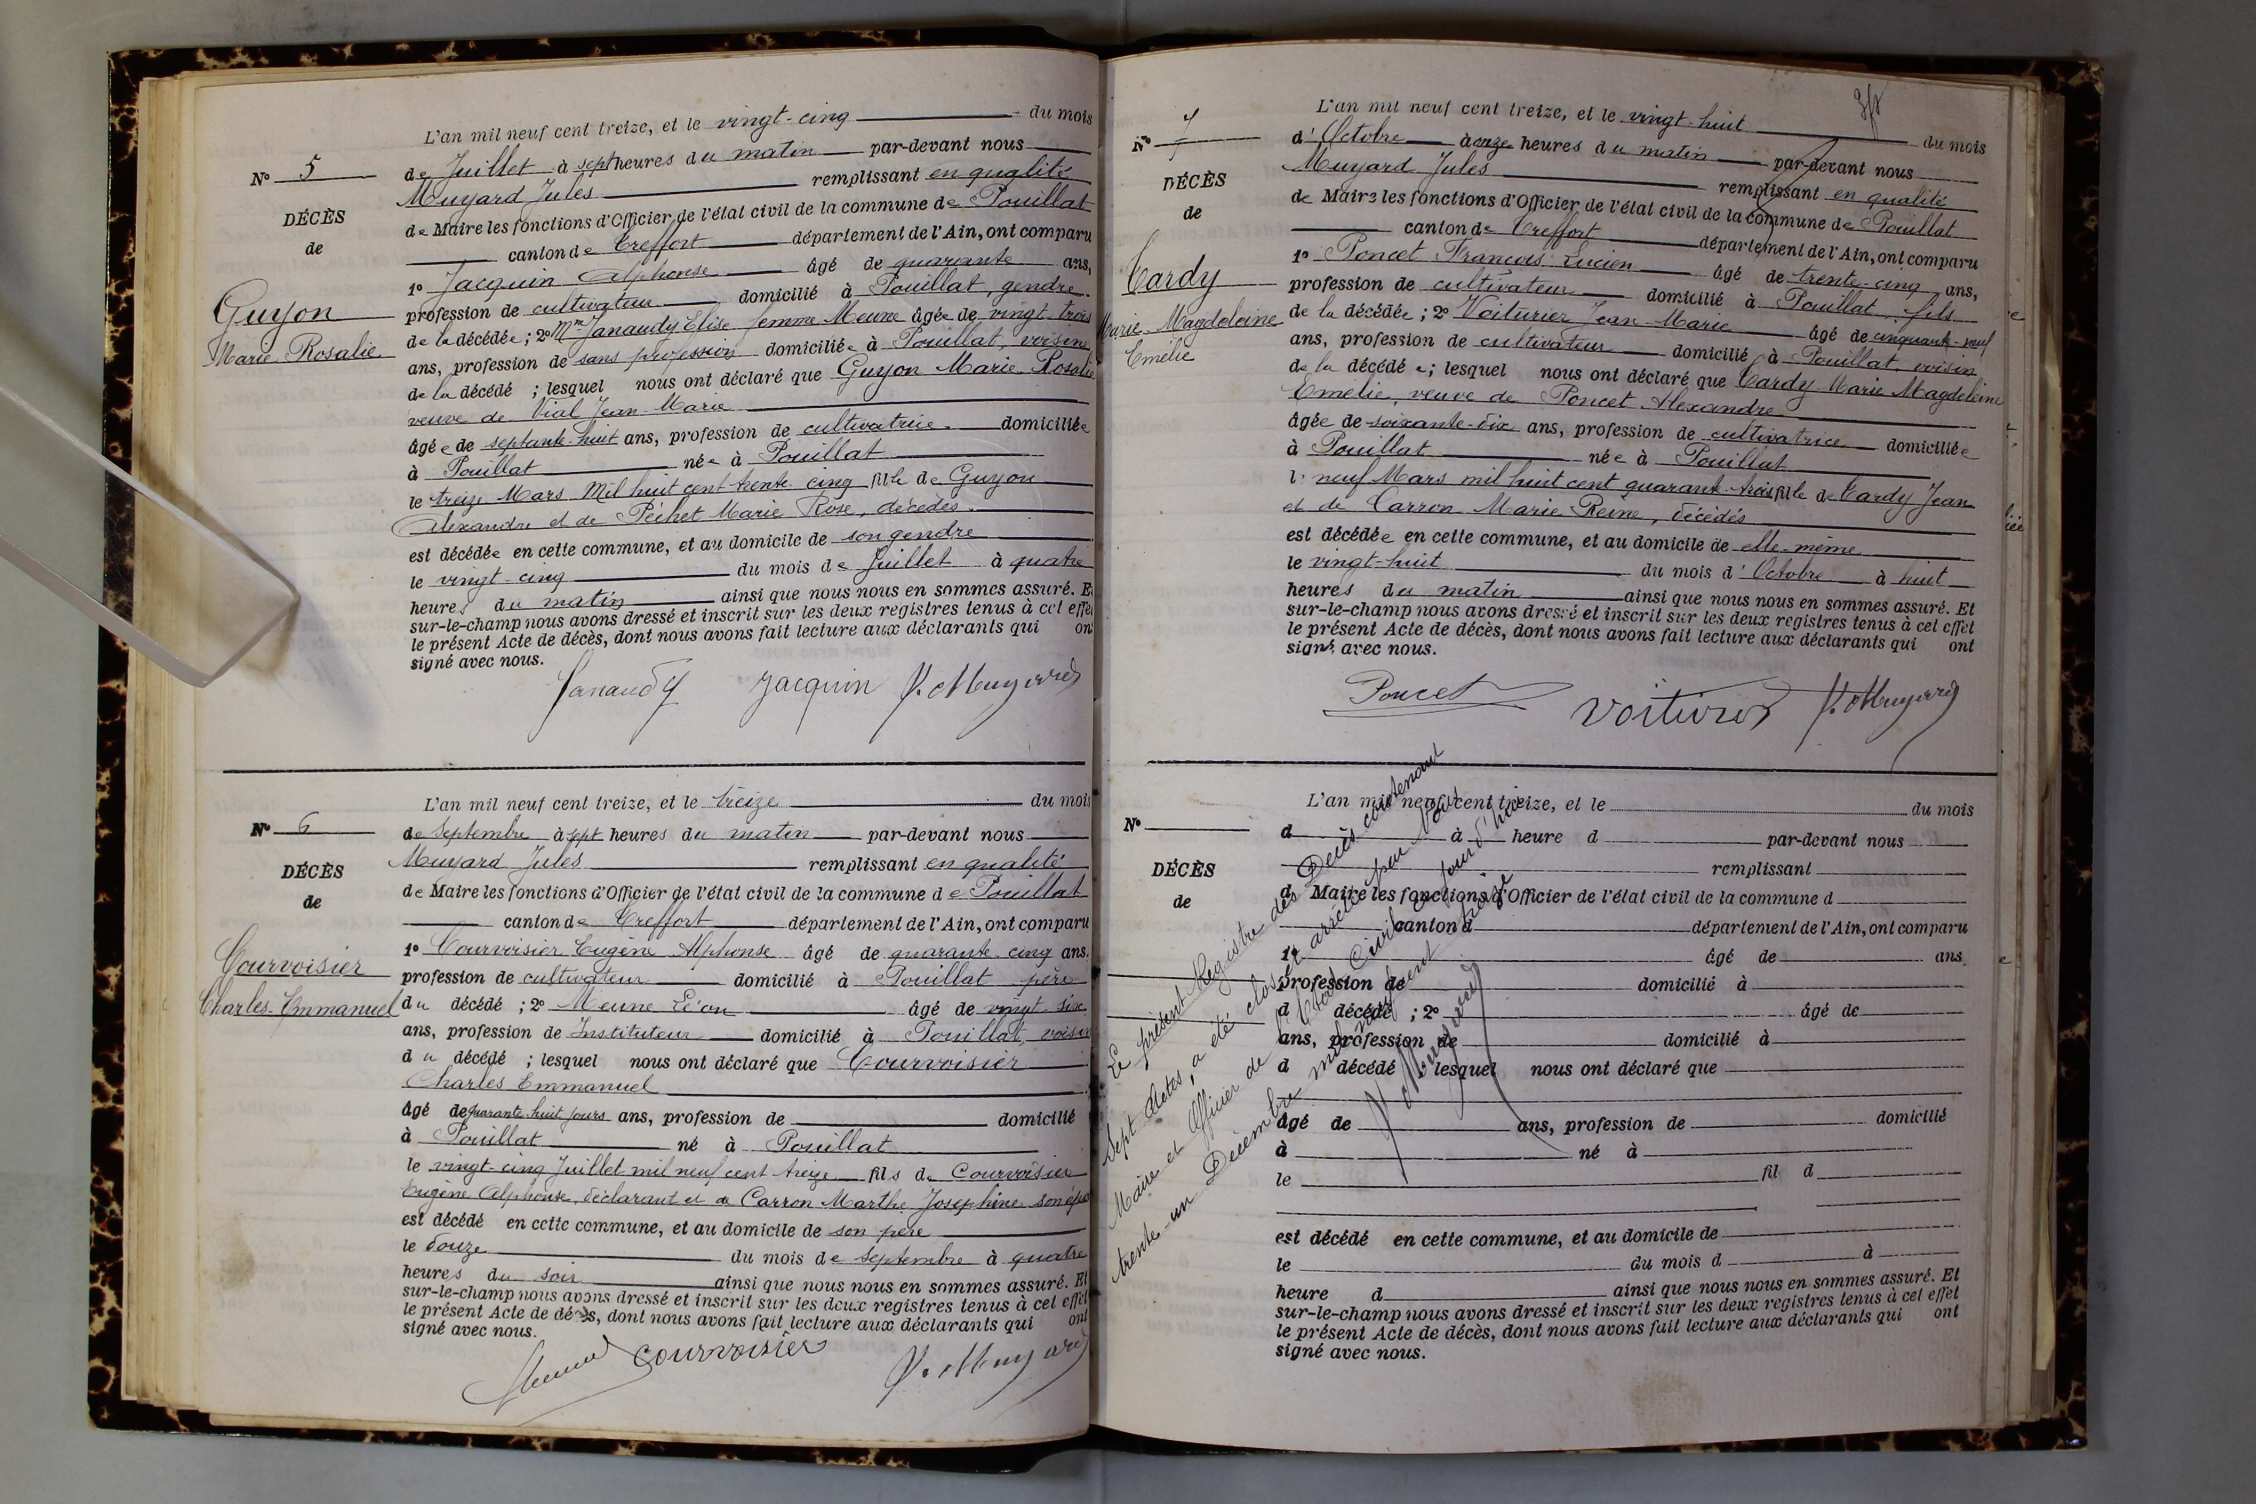 L'an mil neuf cent treize, et le vingt-cinq du mois
N° 5
de Juillet à sept heures du matin par-devant nous
Muyard Jules remplissant en qualité
DÉCÈS
de Maire les fonctions d'Officier de l'état civil de la commune de Pouillat
de
canton de Treffort département de l'Ain, ont comparu
1° Jacquin Alphonse âgé de quarante ans,
Guyon
profession de cultivateur domicilié à Pouillat, gendre
Marie-Rosalie
de la décédée; 2° Mme Janaudy Elise femme Meune âgée de vingt-trois
ans, profession de sans profession domiciliée à Pouillat, voisine
de la décédé ; lesquel nous ont déclaré que Guyon Marie Rosalie
veuve de Vial Jean-Marie
âgée de septante-huit ans, profession de cultivatrice domiciliée
à Pouillat née à Pouillat
le treize Mars Mil huit cent trente-cinq fille de Guyon
Alexandre et de Péchet Marie Rose, décédés.
est décédée en cette commune, et au domicile de son gendre
le vingt-cinq du mois de Juillet à quatre
heures du matin ainsi que nous nous en sommes assuré. E
sur-le-champ nous avons dressé et inscrit sur les deux registres tenus à cet effe
le présent Acte de décès, dont nous avons fait lecture aux déclarants qui on
signé avec nous.
Janaudy Jacquin J. Muyard
L'an mil neuf cent treize, et le treize du mois
N° 6
de Septembre à sept heures du matin par-devant nous
Muyard Jules remplissant en qualité
DÉCÈS
de Maire les fonctions d'Officier de l'état civil de la commune de Pouillat
de
canton de Treffort département de l'Ain, ont comparu
1° Courvoisier Eugène Alphonse âgé de quarante-cinq ans.
Courvoisier
profession de cultivateur domicilié à Pouillat père
Charles-Emmanuel
du décédé ; 2° Meune Léon âgé de vingt-six
ans, profession de Instituteur domicilié à Pouillat, voisin
du décédé ; lesquel nous ont déclaré que Courvoisier
Charles Emmanuel
âgé de quarante-huit jours ans, profession de domicilié
à Pouillat né à Pouillat
le vingt-cinq Juillet mil neuf cent treize fils de Courvoisier
Eugène Alphonse, déclarant et de Carron Marthe Josephine son
est décédé en cette commune, et au domicile de son père
le douze du mois de Septembre à quatre
heures du soir ainsi que nous nous en sommes assuré. Et
sur-le-champ nous avons dressé et inscrit sur les deux registres tenus à cet effet
le présent Acte de décès, dont nous avons fait lecture aux déclarants qui ont
signé avec nous.
Meune Courvoisier J. Muyard
L'an mil neuf cent treize, et le vingt-huit du mois
N° 7
d'Octobre à onze heures du matin par-devant nous
Muyard Jules remplissant en qualité
DÉCÈS
de Maire les fonctions d'Officier de l'état civil de la commune de Pouillat
de
canton de Treffort département de l'Ain, ont comparu
1° Poncet Francois Lucien âgé de trente-cinq ans,
Cardy
profession de cultivateur domicilié à Pouillat, fils
Marie-Magdeleine
de la décédée ; 2° Voiturier Jean-Marie âgé de cinquante-neuf
Emélie
ans, profession de cultivateur domicilié à Pouillat, voisin
de la décédé e; lesquel nous ont déclaré que Cardy Marie Magdeleine
Emélie, veuve de Poncet Alexandre
âgée de soixante-dix ans, profession de cultivatrice domiciliée
à Pouillat née à Pouillat
le neuf Mars mil huit cent quarante-trois fille de Cardy Jean
et de Carron Marie Reine, décédés
est décédée en cette commune, et au domicile de elle-même
le vingt-huit du mois d'Octobre à huit
heures du matin ainsi que nous nous en sommes assuré. Et
sur-le-champ nous avons dressé et inscrit sur les deux registres tenus à cet effet
le présent Acte de décès, dont nous avons fait lecture aux déclarants qui ont
signé avec nous.
Poncet Voiturier J. Muyard
L'an mil neuf cent treize, et le du mois
N°
d à heure d par-devant nous
remplissant
DÉCÈS
d Maire les fonctions d'Officier de l'état civil de la commune d
de
canton d département de l'Ain, ont comparu
1° âgé de ans
profession de domicilié à
d décédé ; 2° âgé de
ans, profession de domicilié à
d décédé lesquel nous ont déclaré que
âgé de ans, profession de domicilié
à né à
le fil d
est décédé en cette commune, et au domicile de
le du mois d à
heure d ainsi que nous nous en sommes assuré. Et
sur-le-champ nous avons dressé et inscrit sur les deux registres tenus à cet effet
le présent Acte de décès, dont nous avons fait lecture aux déclarants qui ont
signé avec nous.
Le présent Registre des Décès contenant
Sept Actes, a été clos et arrêté par Nous
Maire et Officier de l'Etat Civil ce jourd'hui
trente-un Décembre mil neuf cent treize
J. Muyard